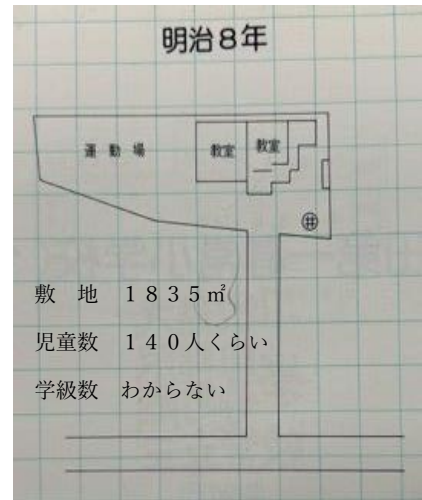 明治8年
運動場
教室
教室
井
敷　地　１８３５㎡
児童数　１４０人くらい
学級数　わからない